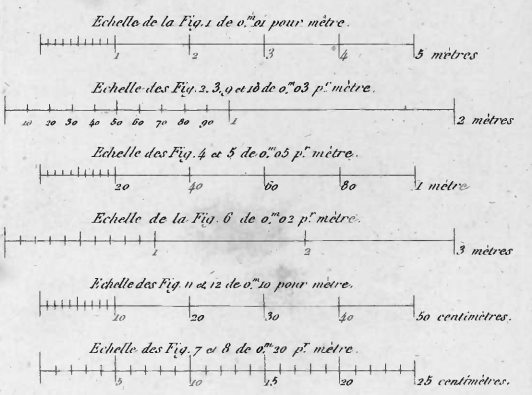 Echelle de la Fig. 1 de 0,m01 pour mètre.
1 2 3 4 5 mètres
Echelle des Fig. 2. 3. 9 et 10 de 0,m03 pr mètre.
10 20 30 40 50 60 70 80 90 1 2 mètres
Echelle des Fig. 4 et 5 de 0,m05 pr mètre.
20 40 60 80 1 mètre
Echelle de la Fig. 6 de 0,m02 pr mètre.
1 2 3 mètres
Echelle des Fig. 11 et 12 de 0,m10 pour mètre.
10 20 30 40 50 centimètres.
Echelle des Fig. 7 et 8 de 0,m20 pr mètre.
5 10 15 20 25 centimètres.